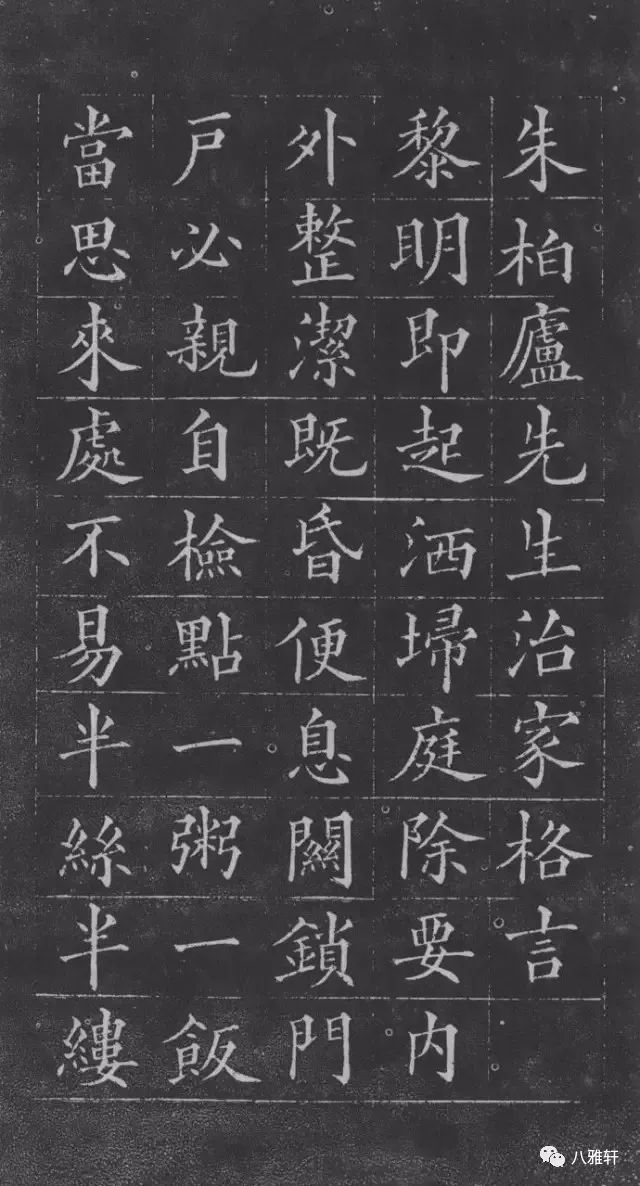 朱柏廬先生治家格言
黎明即起洒埽庭除要内
外整潔既昏便息關鎖門
戸必親自檢點一粥一飯
當思來處不易半絲半縷
八雅轩